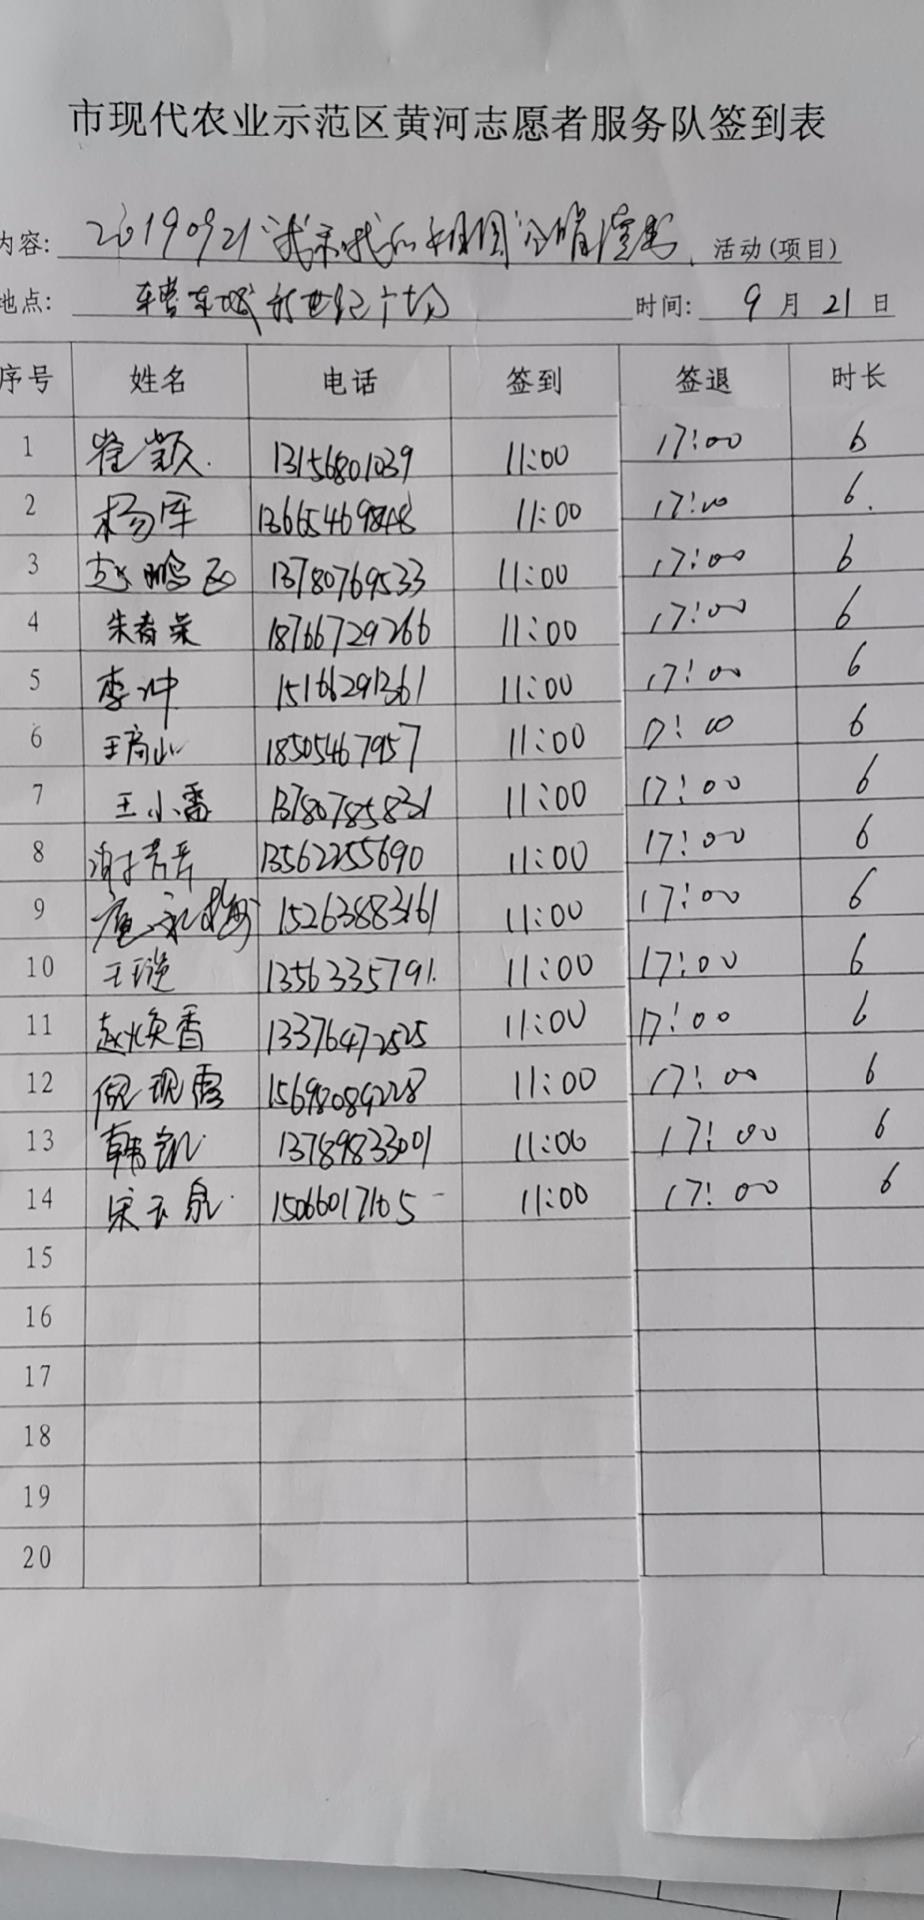 市现代农业示范区黄河志愿者服务队签到表
内容: 20190921“我和我的祖国” 活动(项目)
地点: 东城新世纪广场 时间: 9月21日
序号 姓名 电话 签到 签退 时长
1 崔颖 13156801039 11:00 17:00 6
2 杨军 13665469848 11:00 17:00 6.
3 赵鹏 13780769533 11:00 17:00 6
4 朱春荣 18766729266 11:00 17:00 6
5 李冲 15166291361 11:00 17:00 6
6 王高山 18505467957 11:00 17:00 6
7 王小雷 13780785831 11:00 17:00 6
8 谢芳芳 13562255690 11:00 17:00 6
9 永梅 15263883161 11:00 17:00 6
10 王璇 1356335791. 11:00 17:00 6
11 赵焕香 13376472525 11:00 17:00 6
12 倪现霞 15698089228 11:00 17:00 6
13 韩凯 13789833001 11:00 17:00 6
14 宋玉泉 15066017105 11:00 17:00 6
15
16
17
18
19
20